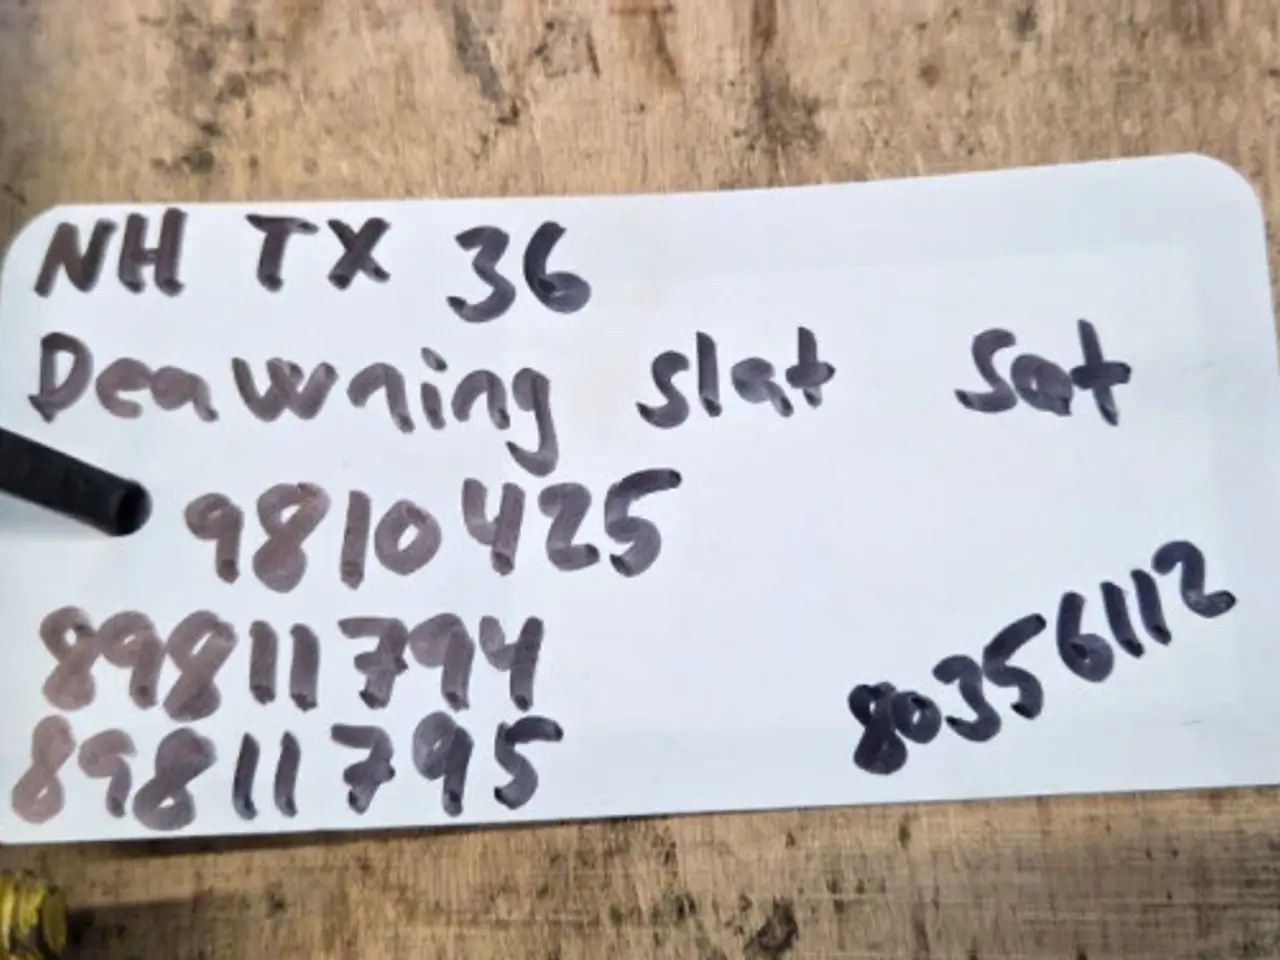 NH TX 36
Deawning slat Sat
9810425
89811794
89811795
80356112